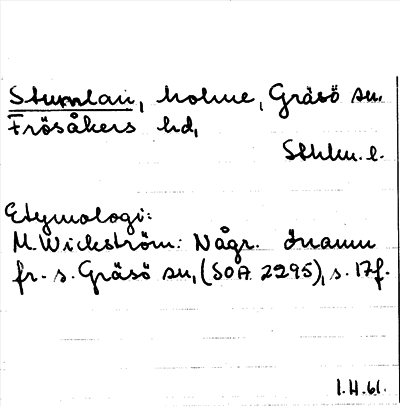 Stumlan, holme, Gräsö sn,
Frösåkers hd,
Sthlm. l.
Etymologi:
M. Wickström: Någr. önamn
fr. s. Gräsö sn, (SOA 2295), s. 17f.
I.H.61.